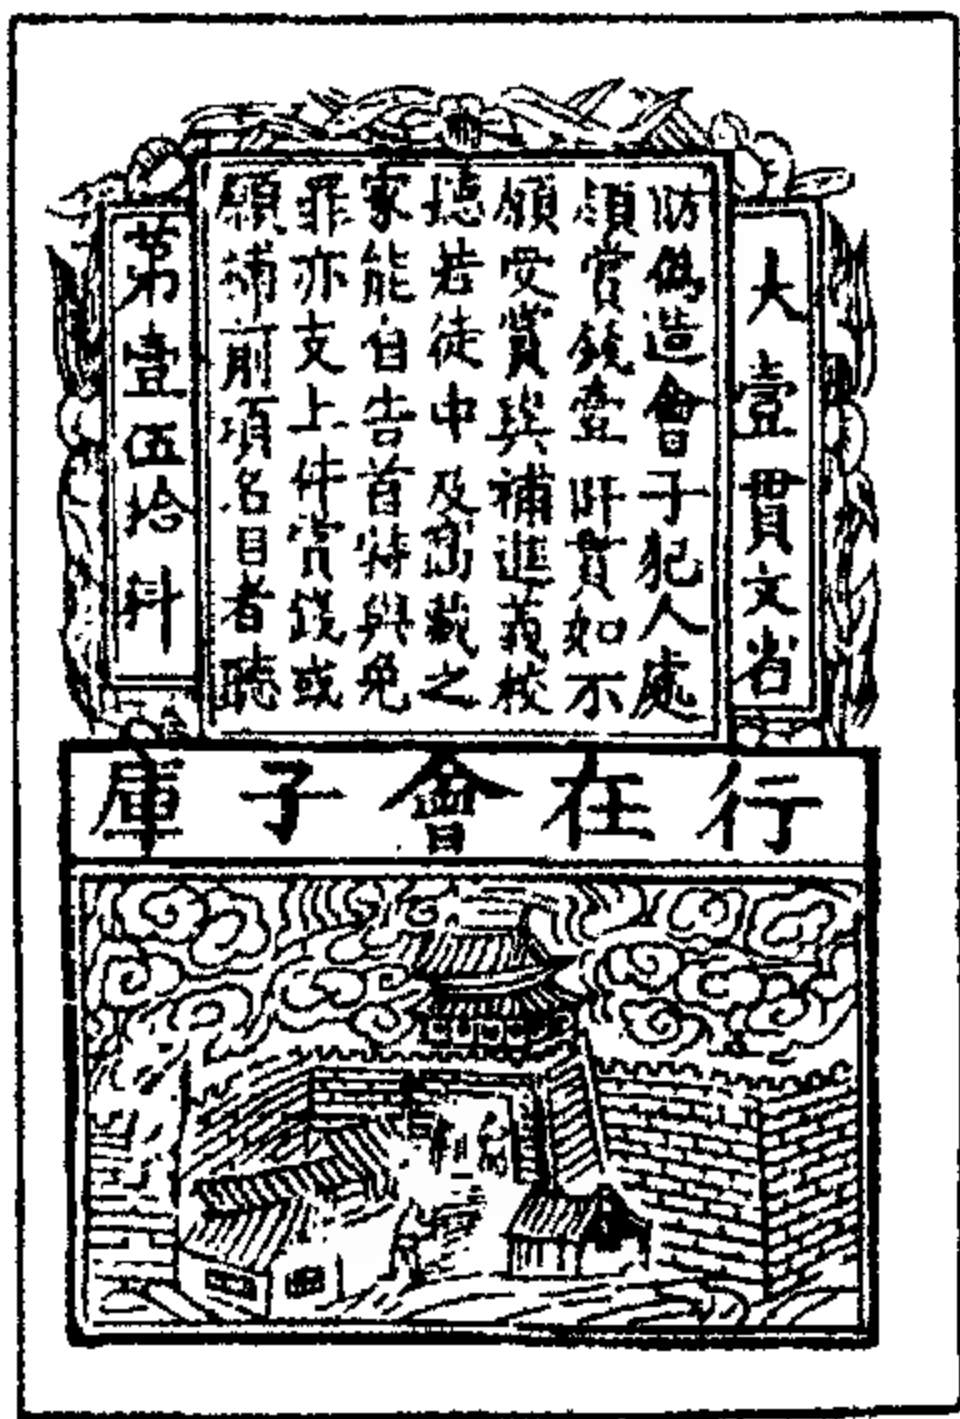 大壹貫文省
防偽造會子犯人處
賞錢壹阡貫如不
願受賞與補進義校
若徒中及窩藏之
家能自告首特與免
罪亦支上件賞錢或
願補前項名目者聽
第壹伍拾料
行在會子庫